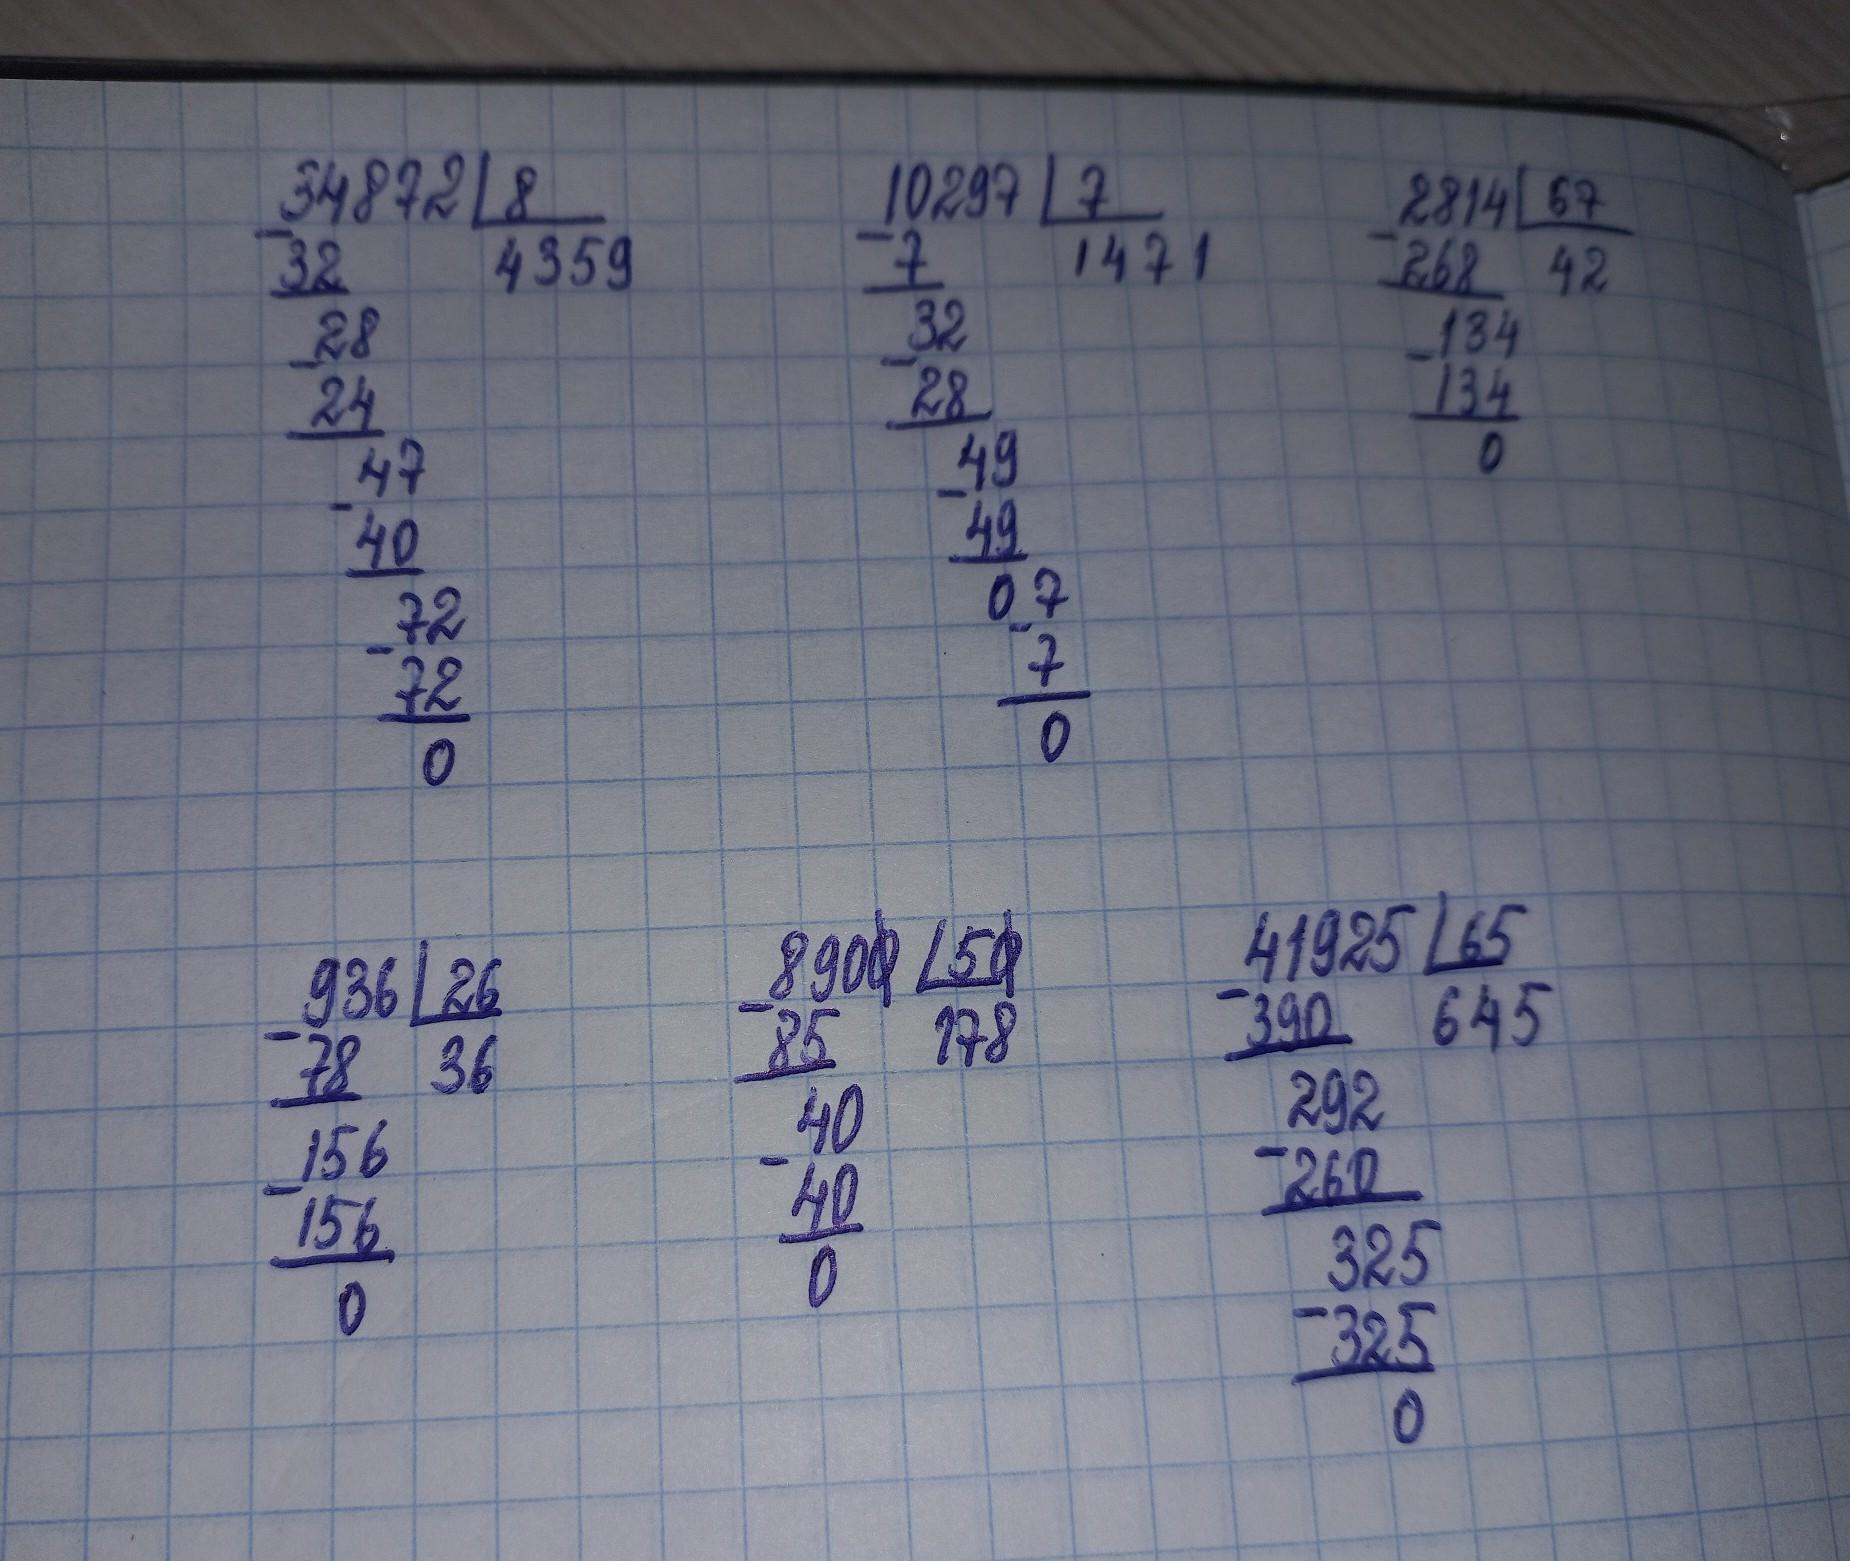 34872 8
- 32 4359
28
- 24
47
- 40
72
- 72
0
10297 7
- 7 1471
32
- 28
49
- 49
07
- 7
0
2814 67
- 268 42
134
- 134
0
936 26
- 78 36
156
- 156
0
8900 50
- 85 178
40
- 40
0
41925 65
- 390 645
292
- 260
325
- 325
0